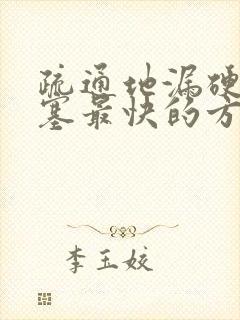 疏通地漏硬
塞最快的方
李玉姣